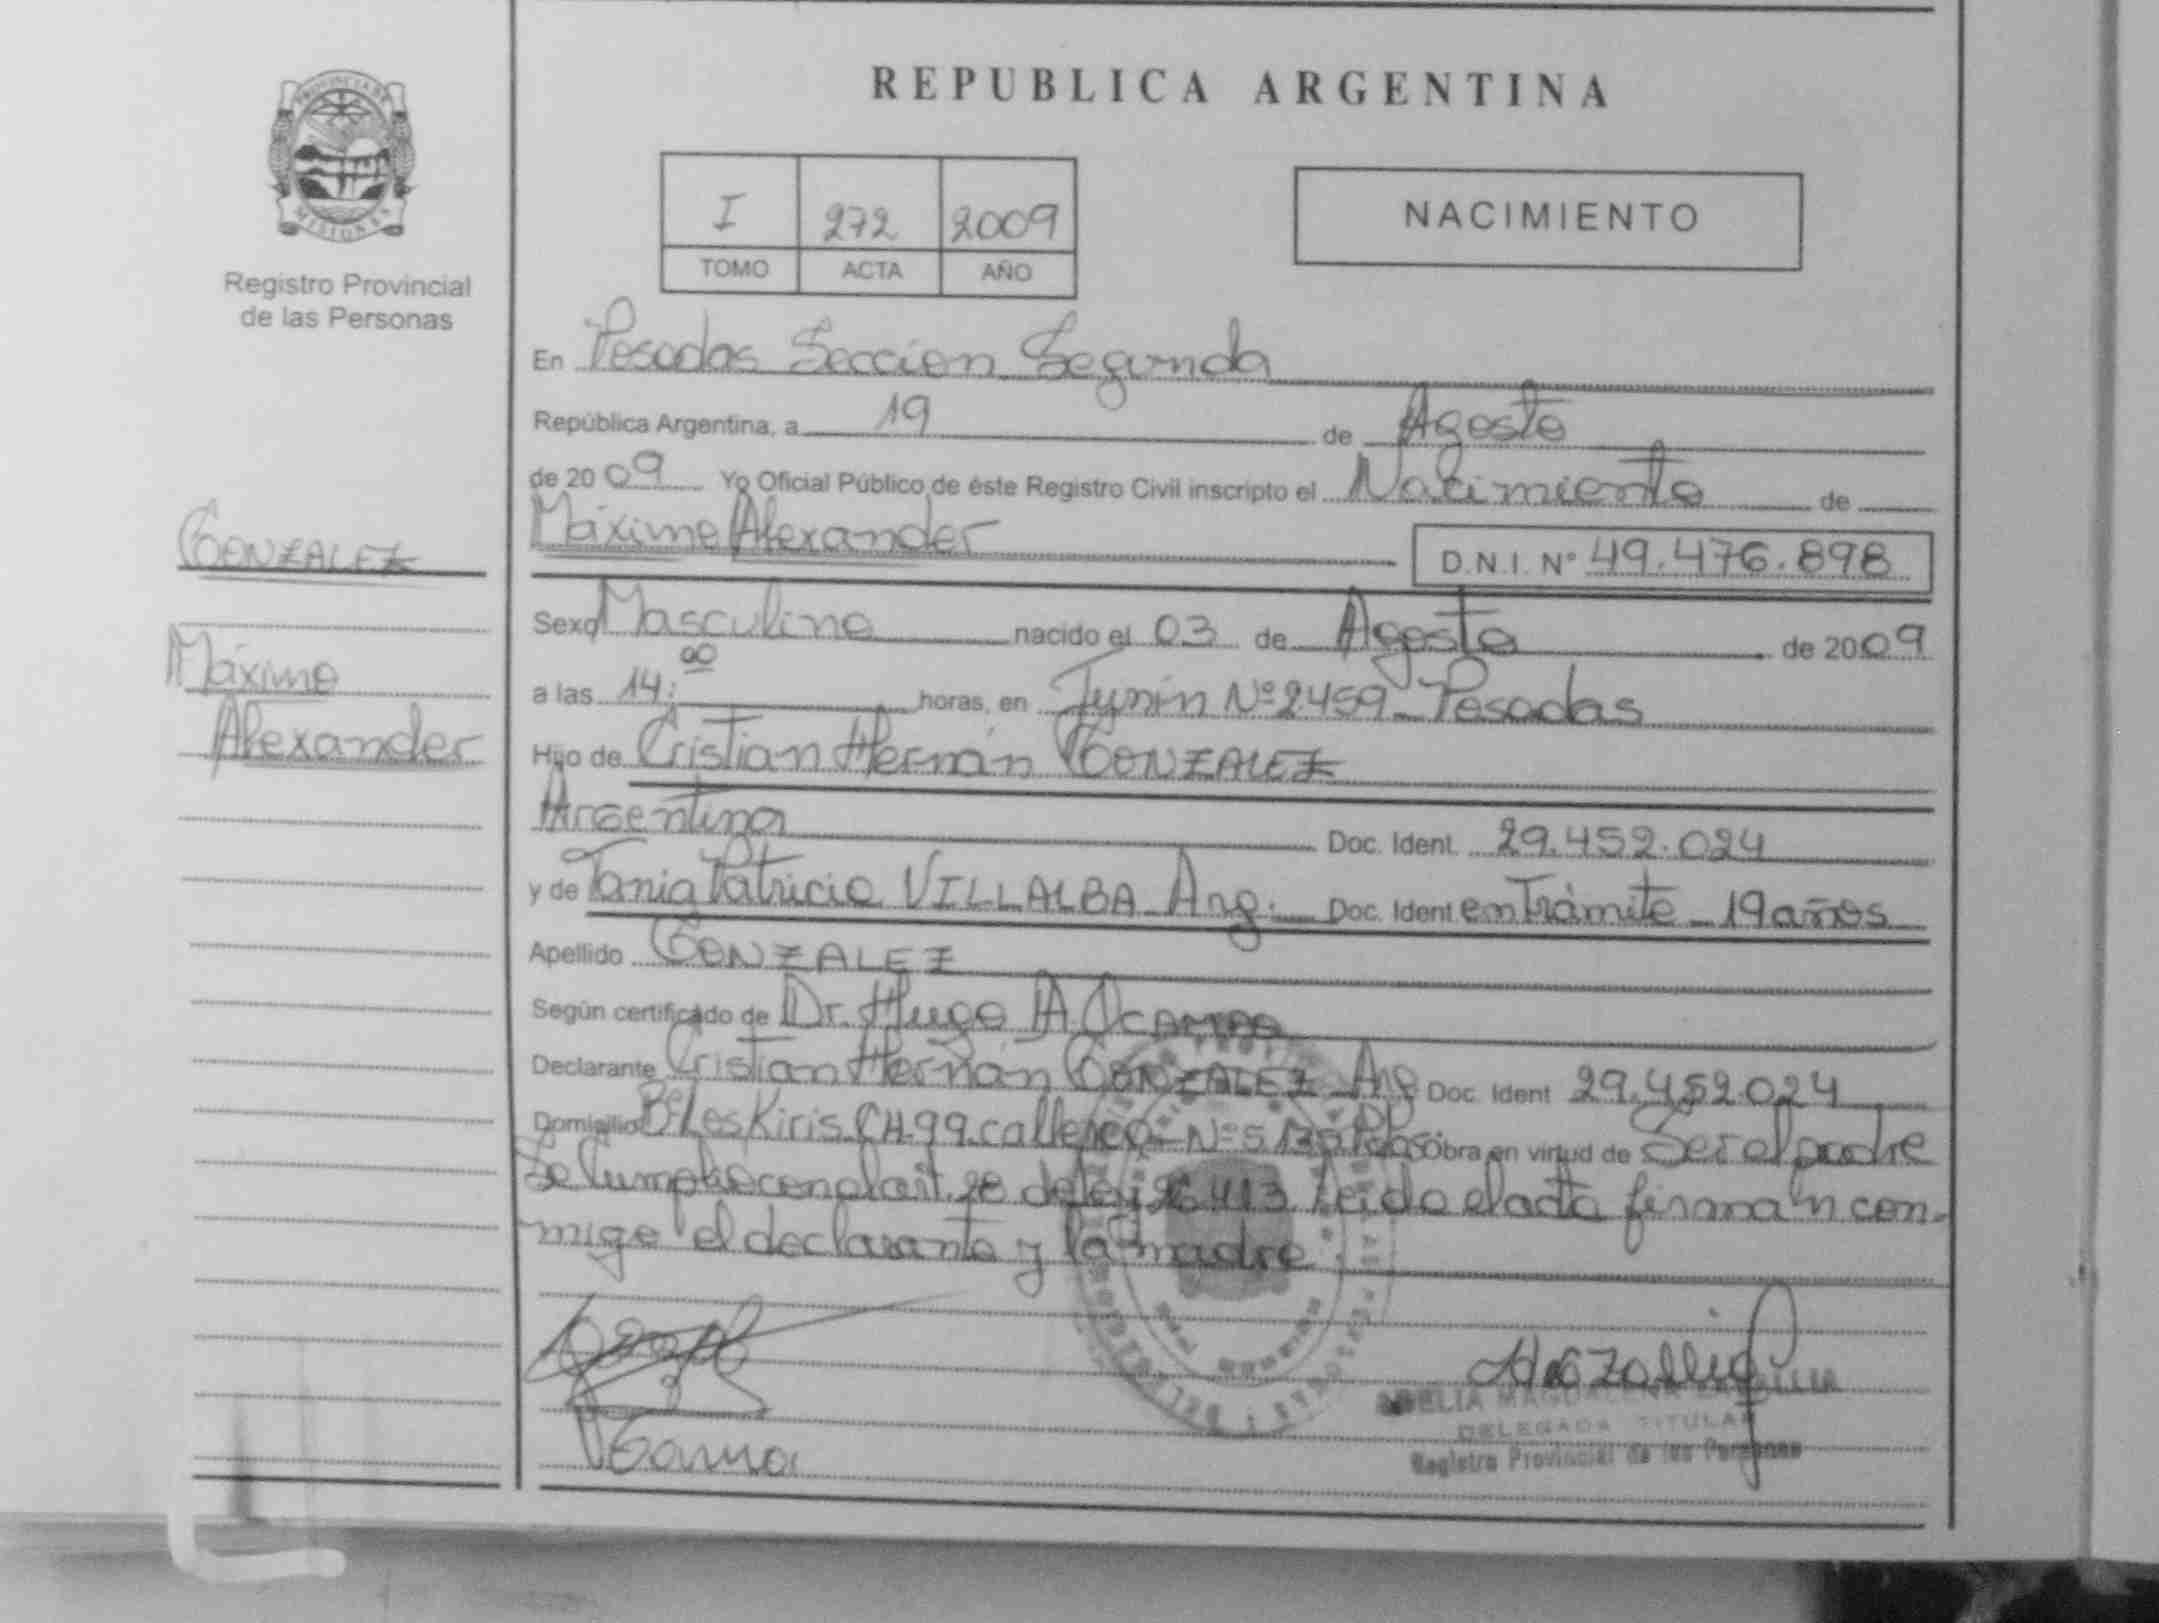 REPUBLICA ARGENTINA
PROVINCIA DE MISIONES
Registro Provincial
de las Personas
I 272 2009
TOMO ACTA AÑO
NACIMIENTO
En Posadas Sección Segunda
República Argentina, a 19 de Agosto
de 2009 Yo Oficial Público de éste Registro Civil inscripto el Nacimiento de
Máximo Alexander D.N.I. Nº 49.476.898
GONZALEZ
Máximo
Alexander
Sexo Masculino nacido el 03 de Agosto de 2009
a las 14:00 horas, en Junín Nº 2459 Posadas
Hijo de Cristian Hernán GONZALEZ
Argentino Doc. Ident. 29.452.024
y de Tania Patricia VILLALBA Arg. Doc. Ident en Trámite 19 años
Apellido GONZALEZ
Según certificado de Dr. Hugo A. OCAMPO
Declarante Cristian Hernán GONZALEZ Arg Doc. Ident 29.452.024
Domicilio Bº Los Kiris CH.99 calle Nº Obra en virtud de Ser el padre
Se cumple con el art. de Ley 26.413 Leída el acta firman con-
migo el declarante y la madre.
DELEGADA TITULAR
Registro Provincial de las Personas